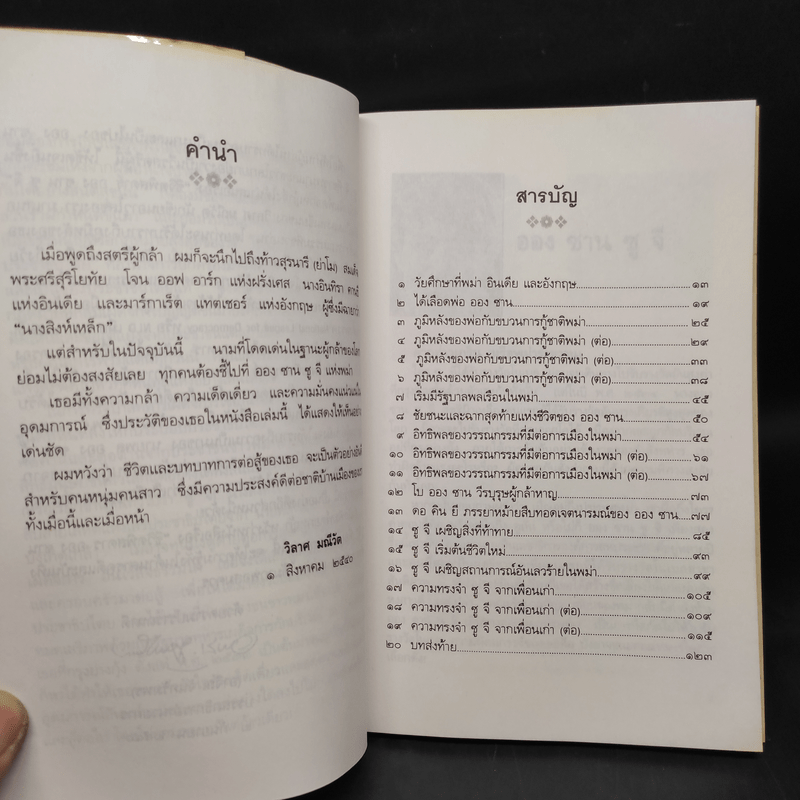 คำนำ
เมื่อพูดถึงสตรีผู้กล้า ผมก็จะนึกไปถึงท้าวสุรนารี (ย่าโม) สมเด็จ
พระศรีสุริโยทัย โจน ออฟ อาร์ก แห่งฝรั่งเศส นางอินทิรา คานธี
แห่งอินเดีย และมาร์กาเร็ต แทตเชอร์ แห่งอังกฤษ ผู้ซึ่งมีฉายาว่า
“นางสิงห์เหล็ก”
แต่สำหรับในปัจจุบันนี้ นามที่โดดเด่นในฐานะผู้กล้าของโลก
ย่อมไม่ต้องสงสัยเลย ทุกคนต้องชี้ไปที่ ออง ซาน ซู จี แห่งพม่า
เธอมีทั้งความกล้า ความเด็ดเดี่ยว และความมั่นคงแน่วแน่ใน
อุดมการณ์ ซึ่งประวัติของเธอในหนังสือเล่มนี้ ได้แสดงให้เห็นอย่าง
เด่นชัด
ผมหวังว่า ชีวิตและบทบาทการต่อสู้ของเธอ จะเป็นตัวอย่างอันดี
สำหรับคนหนุ่มคนสาว ซึ่งมีความประสงค์ดีต่อชาติบ้านเมืองของ
ทั้งเมื่อนี้และเมื่อหน้า
วิลาศ มณีวัต
๑ สิงหาคม ๒๕๔๐
สารบัญ
๑ วัยศึกษาที่พม่า อินเดีย และอังกฤษ...๑๓
๒ ได้เลือดพ่อ ออง ซาน...๑๙
๓ ภูมิหลังของพ่อกับขบวนการกู้ชาติพม่า...๒๕
๔ ภูมิหลังของพ่อกับขบวนการกู้ชาติพม่า (ต่อ)...๒๙
๕ ภูมิหลังของพ่อกับขบวนการกู้ชาติพม่า (ต่อ)...๓๓
๖ ภูมิหลังของพ่อกับขบวนการกู้ชาติพม่า (ต่อ)...๓๘
๗ เริ่มมีรัฐบาลพลเรือนในพม่า...๔๕
๘ ชัยชนะและฉากสุดท้ายแห่งชีวิตของ ออง ซาน...๕๐
๙ อิทธิพลของวรรณกรรมที่มีต่อการเมืองในพม่า...๕๔
๑๐ อิทธิพลของวรรณกรรมที่มีต่อการเมืองในพม่า (ต่อ)...๖๑
๑๑ อิทธิพลของวรรณกรรมที่มีต่อการเมืองในพม่า (ต่อ)...๖๗
๑๒ โบ ออง ซาน วีรบุรุษผู้กล้าหาญ...๗๓
๑๓ ดอ คิน ยี ภรรยาหม้ายสืบทอดเจตนารมณ์ของ ออง ซาน...๗๗
๑๔ ซู จี เผชิญสิ่งที่ท้าทาย...๘๕
๑๕ ซู จี เริ่มต้นชีวิตใหม่...๙๓
๑๖ ซู จี เผชิญสถานการณ์อันเลวร้ายในพม่า...๙๙
๑๗ ความทรงจำ ซู จี จากเพื่อนเก่า...๑๐๕
๑๘ ความทรงจำ ซู จี จากเพื่อนเก่า (ต่อ)...๑๐๙
๑๙ ความทรงจำ ซู จี จากเพื่อนเก่า (ต่อ)...๑๑๕
๒๐ บทส่งท้าย...๑๒๓